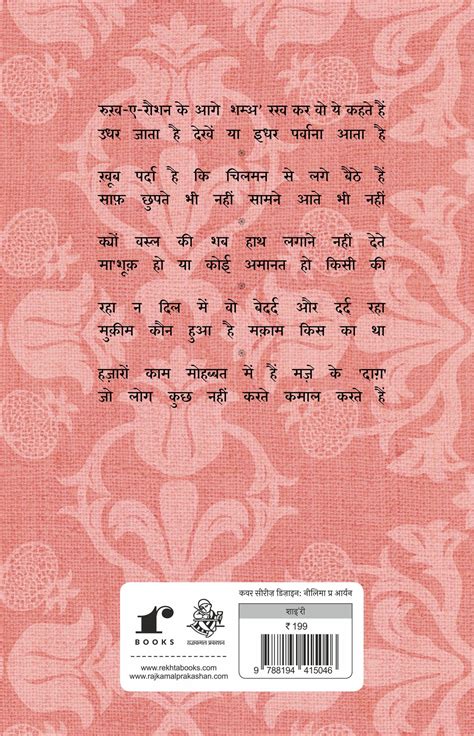 रुख़-ए-रौशन के आगे शम्अ' रख कर वो ये कहते हैं
उधर जाता है देखें या इधर पर्वाना आता है
ख़ूब पर्दा है कि चिलमन से लगे बैठे हैं
साफ़ छुपते भी नहीं सामने आते भी नहीं
क्यों वस्ल की शब हाथ लगाने नहीं देते
मा'शूक़ हो या कोई अमानत हो किसी की
रहा न दिल में वो बेदर्द और दर्द रहा
मुक़ीम कौन हुआ है मक़ाम किस का था
हज़ारों काम मोहब्बत में हैं मज़े के 'दाग़'
जो लोग कुछ नहीं करते कमाल करते हैं
कवर सीरीज डिजाइन: नीलिमा प्र आर्यन
r
BOOKS
राजकमल प्रकाशन
शाइ'री
₹ 199
www.rekhtabooks.com
www.rajkamalprakashan.com
9 788194 415046